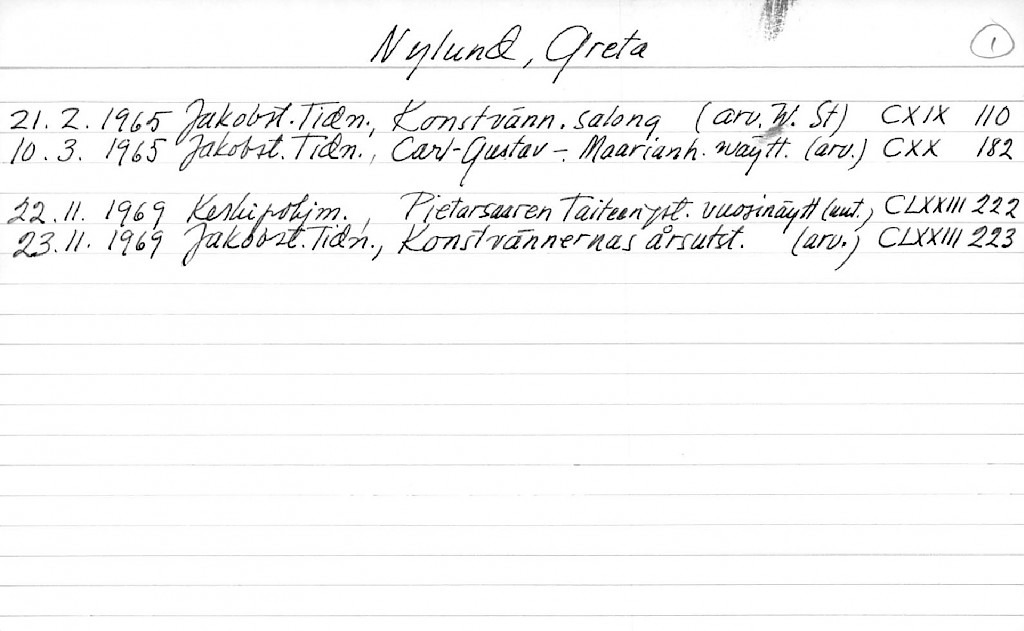 Nylund, Greta
1
21. 2. 1965 Jakobst. Tidn., Konstvänn. salong (arv. W. St) CXIX 110
10. 3. 1965 Jakobst. Tidn., Carl-Gustav - Maarianh. näytt. (arv.) CXX 182
22. 11. 1969 Keskipohjm., Pietarsaaren Taiteenyst. vuosinäytt (uut.) CLXXIII 222
23. 11. 1969 Jakobst. Tidn., Konstvännernas årsutst. (arv.) CLXXIII 223